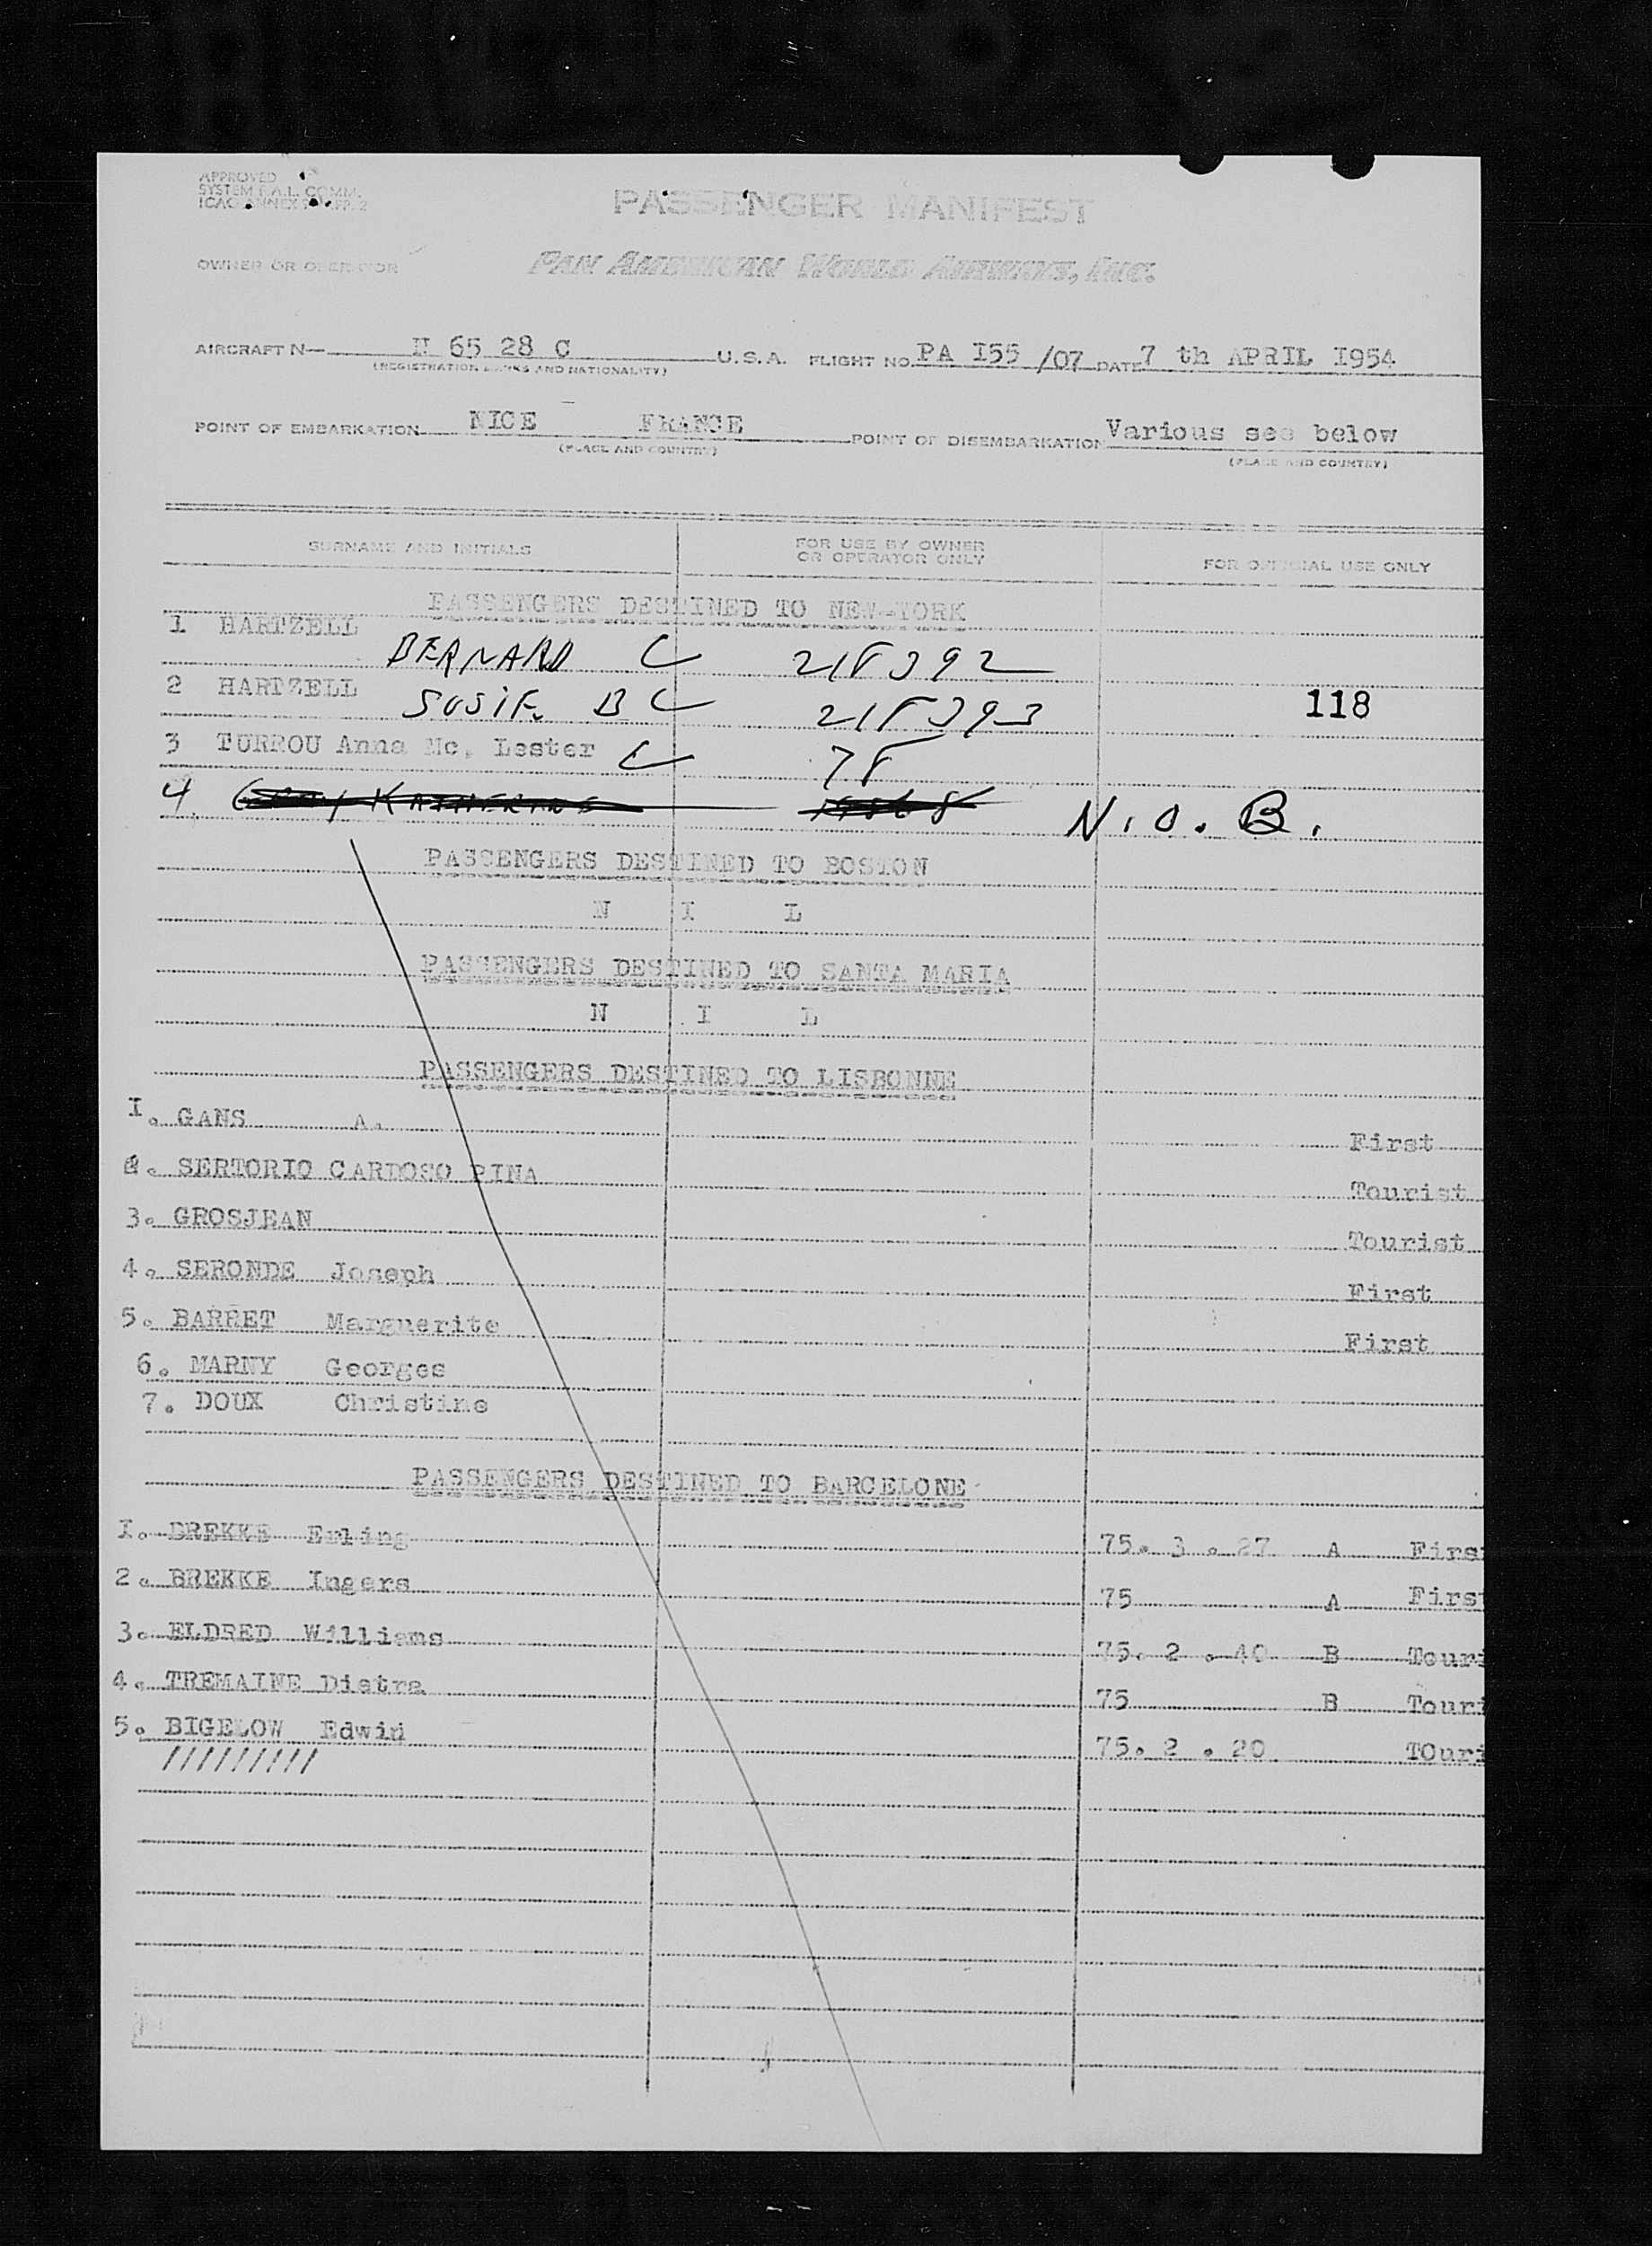 APPROVED
SYSTEM F.A.L. COMM.
ICAO ANNEX
PASSENGER MANIFEST
OWNER OR OPERATOR PAN AMERICAN WORLD AIRWAYS, INC.
AIRCRAFT N— N 65 28 C U.S.A. FLIGHT NO. PA I55 /07 DATE 7 th APRIL I954
(REGISTRATION MARKS AND NATIONALITY)
POINT OF EMBARKATION NICE FRANCE POINT OF DISEMBARKATION Various see below
(PLACE AND COUNTRY) (PLACE AND COUNTRY)
SURNAME AND INITIALS FOR USE BY OWNER OR OPERATOR ONLY FOR OFFICIAL USE ONLY
PASSENGERS DESTINED TO NEW-YORK
1 HARTZELL BERNARD C
2 HARTZELL SUSIE B C 118
3 TURROU Anna Mc. Lester C
4. KATHERINE N.O.B.
PASSENGERS DESTINED TO BOSTON
N I L
PASSENGERS DESTINED TO SANTA MARIA
N I L
PASSENGERS DESTINED TO LISBONNE
I. GANS A. First
2. SERTORIO CARDOSO PINA Tourist
3. GROSJEAN Tourist
4. SERONDE Joseph First
5. BARRET Marguerite First
6. MARNY Georges
7. DOUX Christine
PASSENGERS DESTINED TO BARCELONE
I. BREKKE Erling 75. 3 . 27 A Firs
2. BREKKE Ingers 75 A Firs
3. ELDRED Williams 75. 2 . 40 B Touri
4. TREMAINE Distra 75 B Touri
5. BIGELOW Edwin 75. 2 . 20 TOuri
/////////